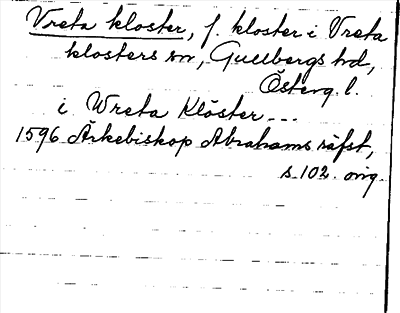 Vreta kloster, f. kloster i Vreta
klosters sn, Gullbergs hd,
Österg. l.
i Wreta Klöster ---
1596 Ärkebiskop Abrahams räfst,
s. 102. orig.